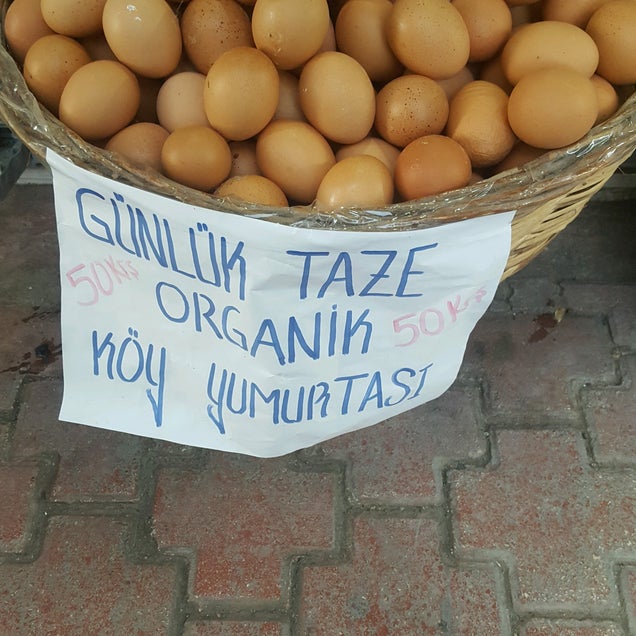 GÜNLÜK TAZE
50 KRŞ ORGANİK 50 KRŞ
KÖY YUMURTASI